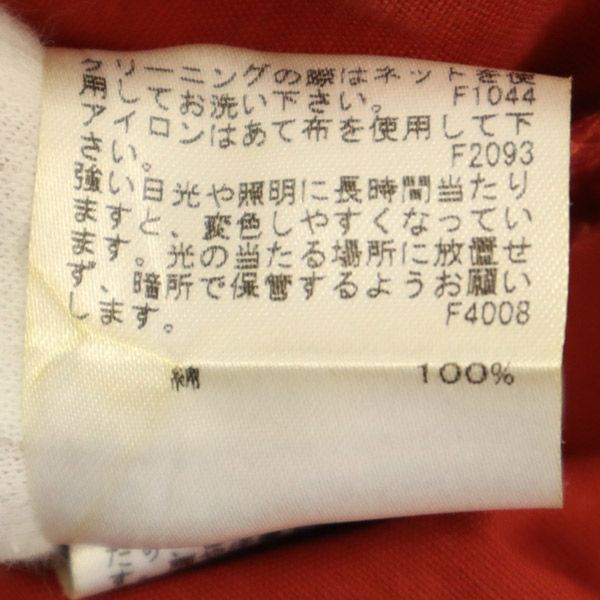 クリーニングの際はネットを使
用してお洗い下さい。 F1044
アイロンはあて布を使用して下
さい。 F2093
強い日光や照明に長時間当たり
ますと、変色しやすくなってい
ます。光の当たる場所に放置せ
ず、暗所で保管するようお願い
します。 F4008
綿 100%